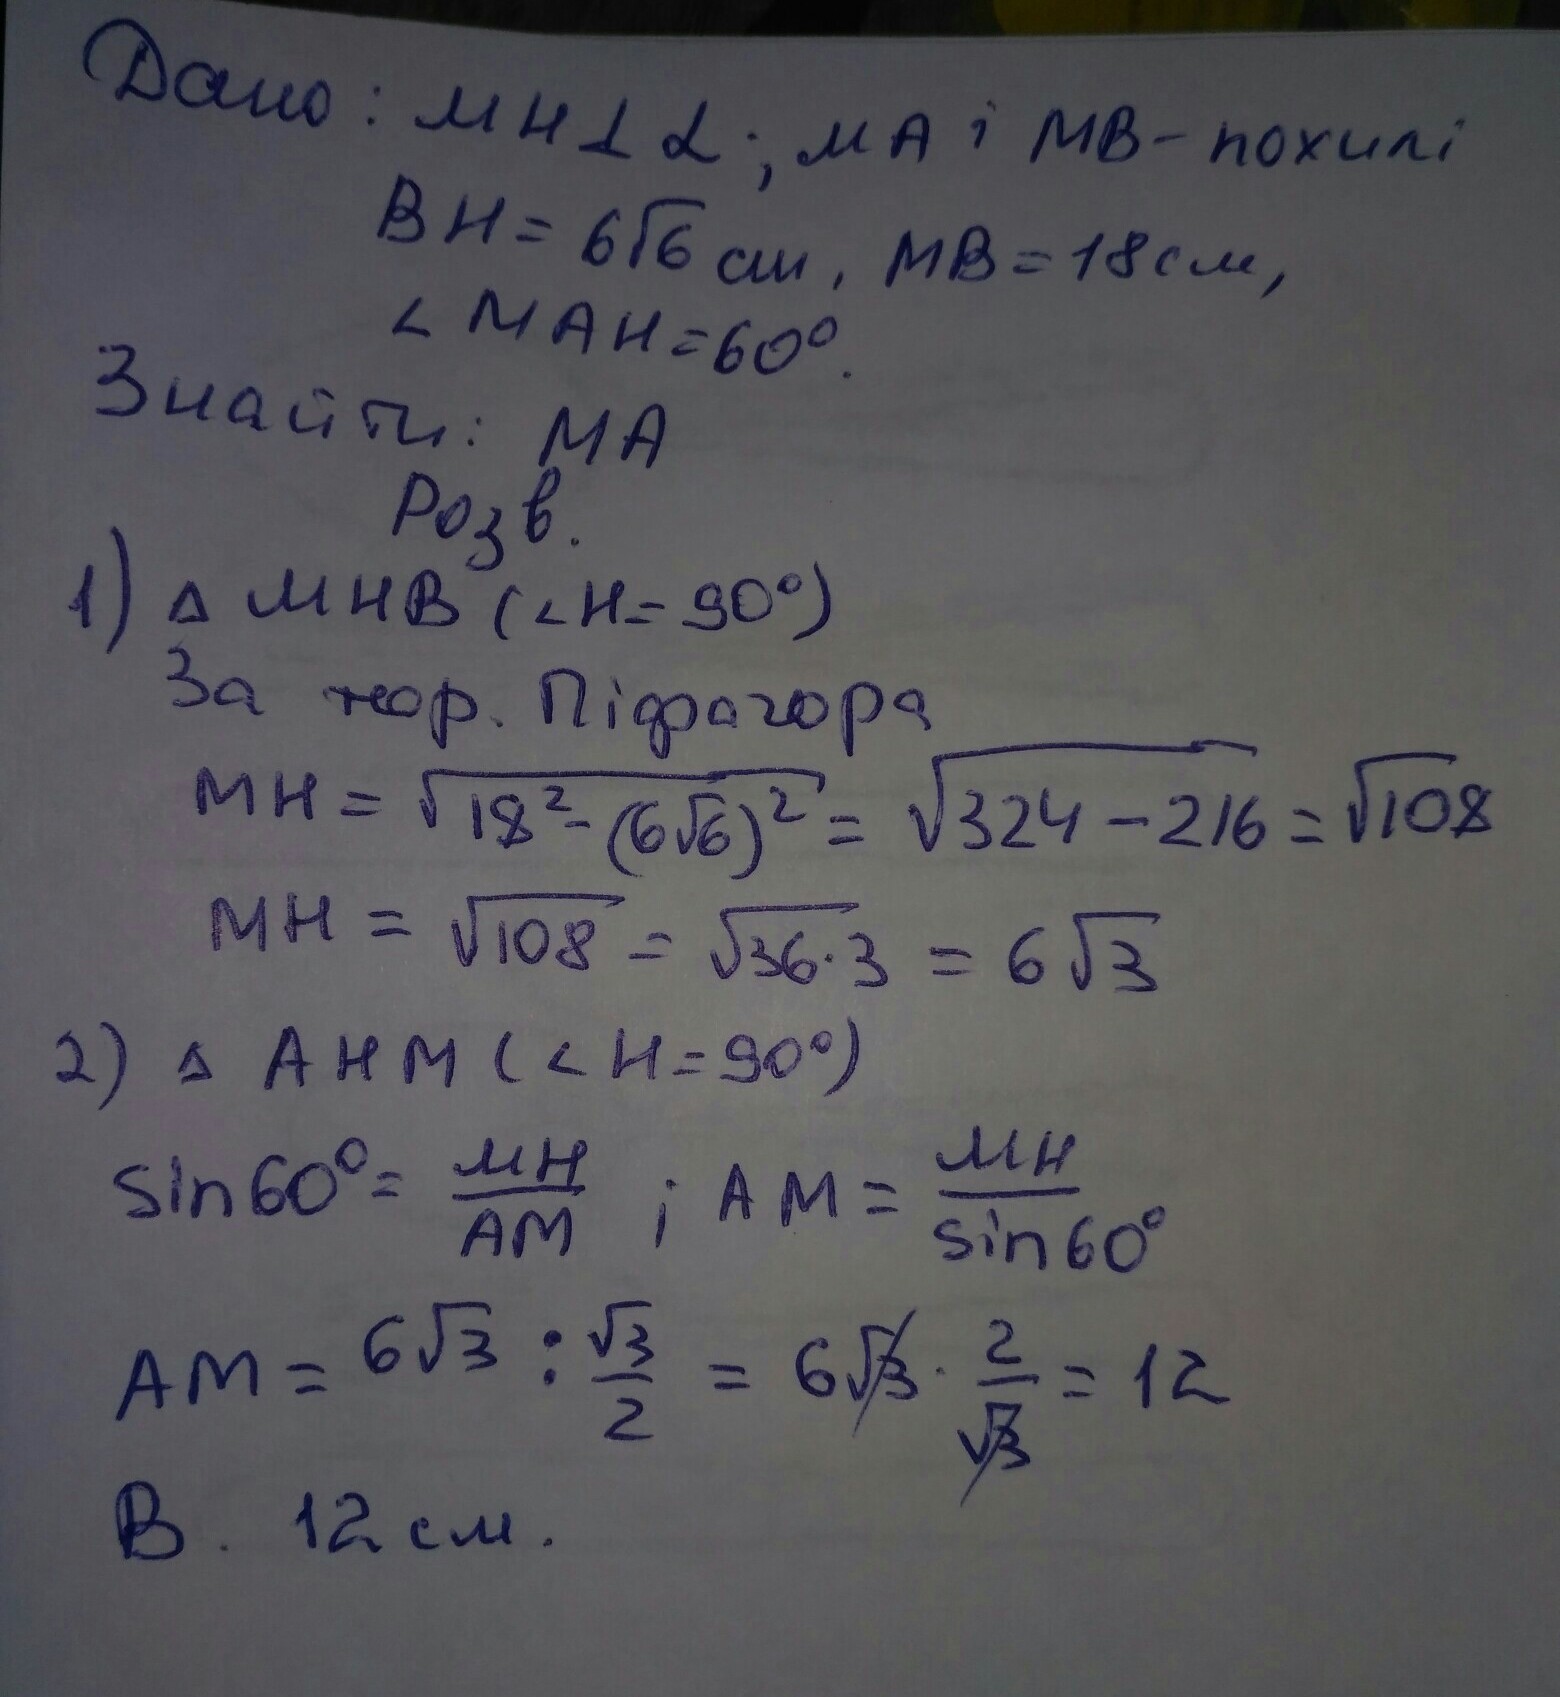 Дано: MH⊥α; MA і MB - похилі
BH = 6√6 см, MB = 18 см,
∠MAH = 60°.
Знайти: MA
Розв.
1) △ MHB (∠H = 90°)
За теор. Піфагора
MH = √(18² - (6√6)²) = √(324 - 216) = √108
MH = √108 = √(36·3) = 6√3
2) △ AHM (∠H = 90°)
sin60° = MH/AM ; AM = MH/sin60°
AM = 6√3 : √3/2 = 6√3 · 2/√3 = 12
В. 12 см.